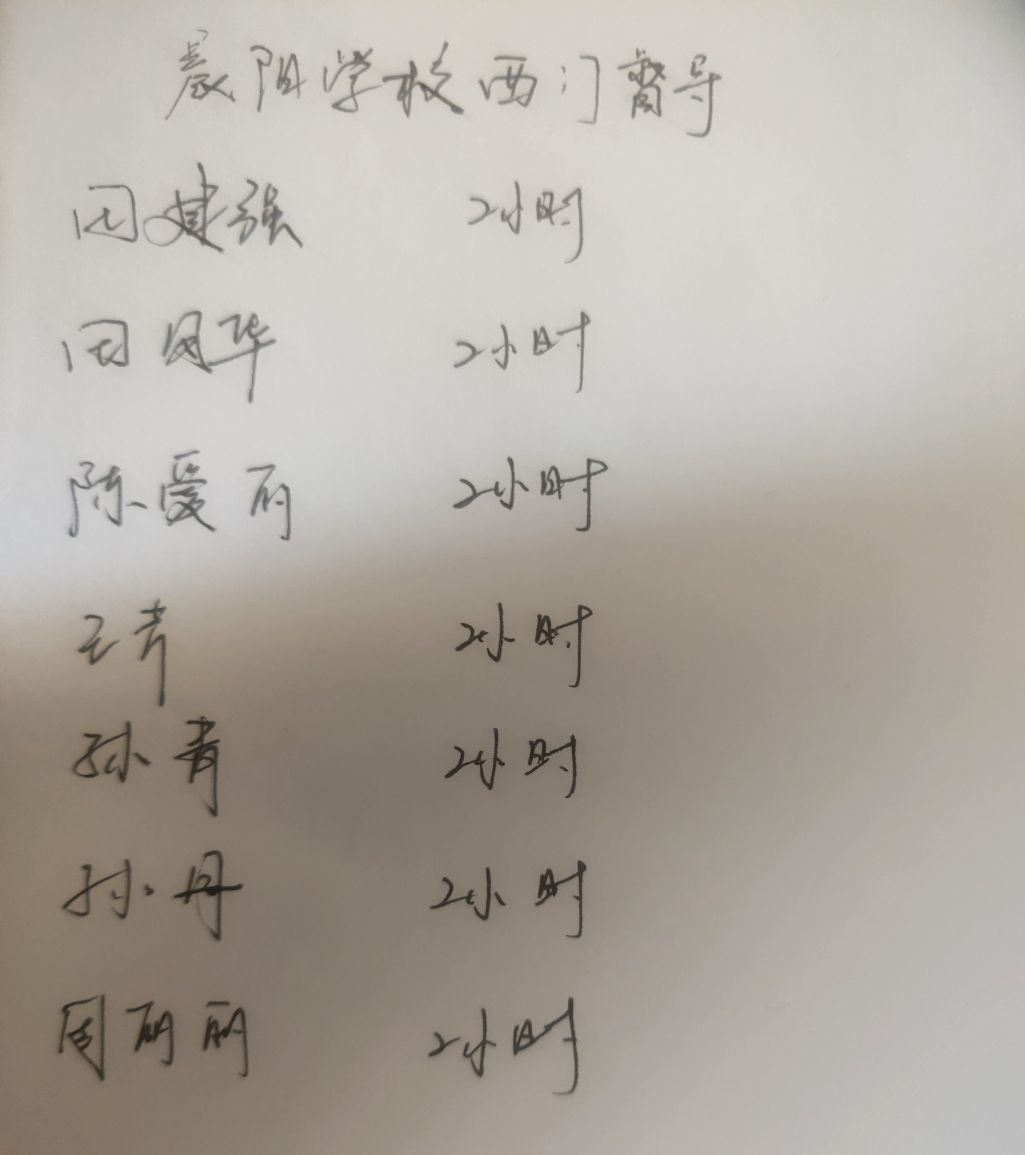 晨阳学校西门督导
田建强 2小时
田凤华 2小时
陈爱丽 2小时
王芹 2小时
孙青 2小时
孙丹 2小时
周丽丽 2小时